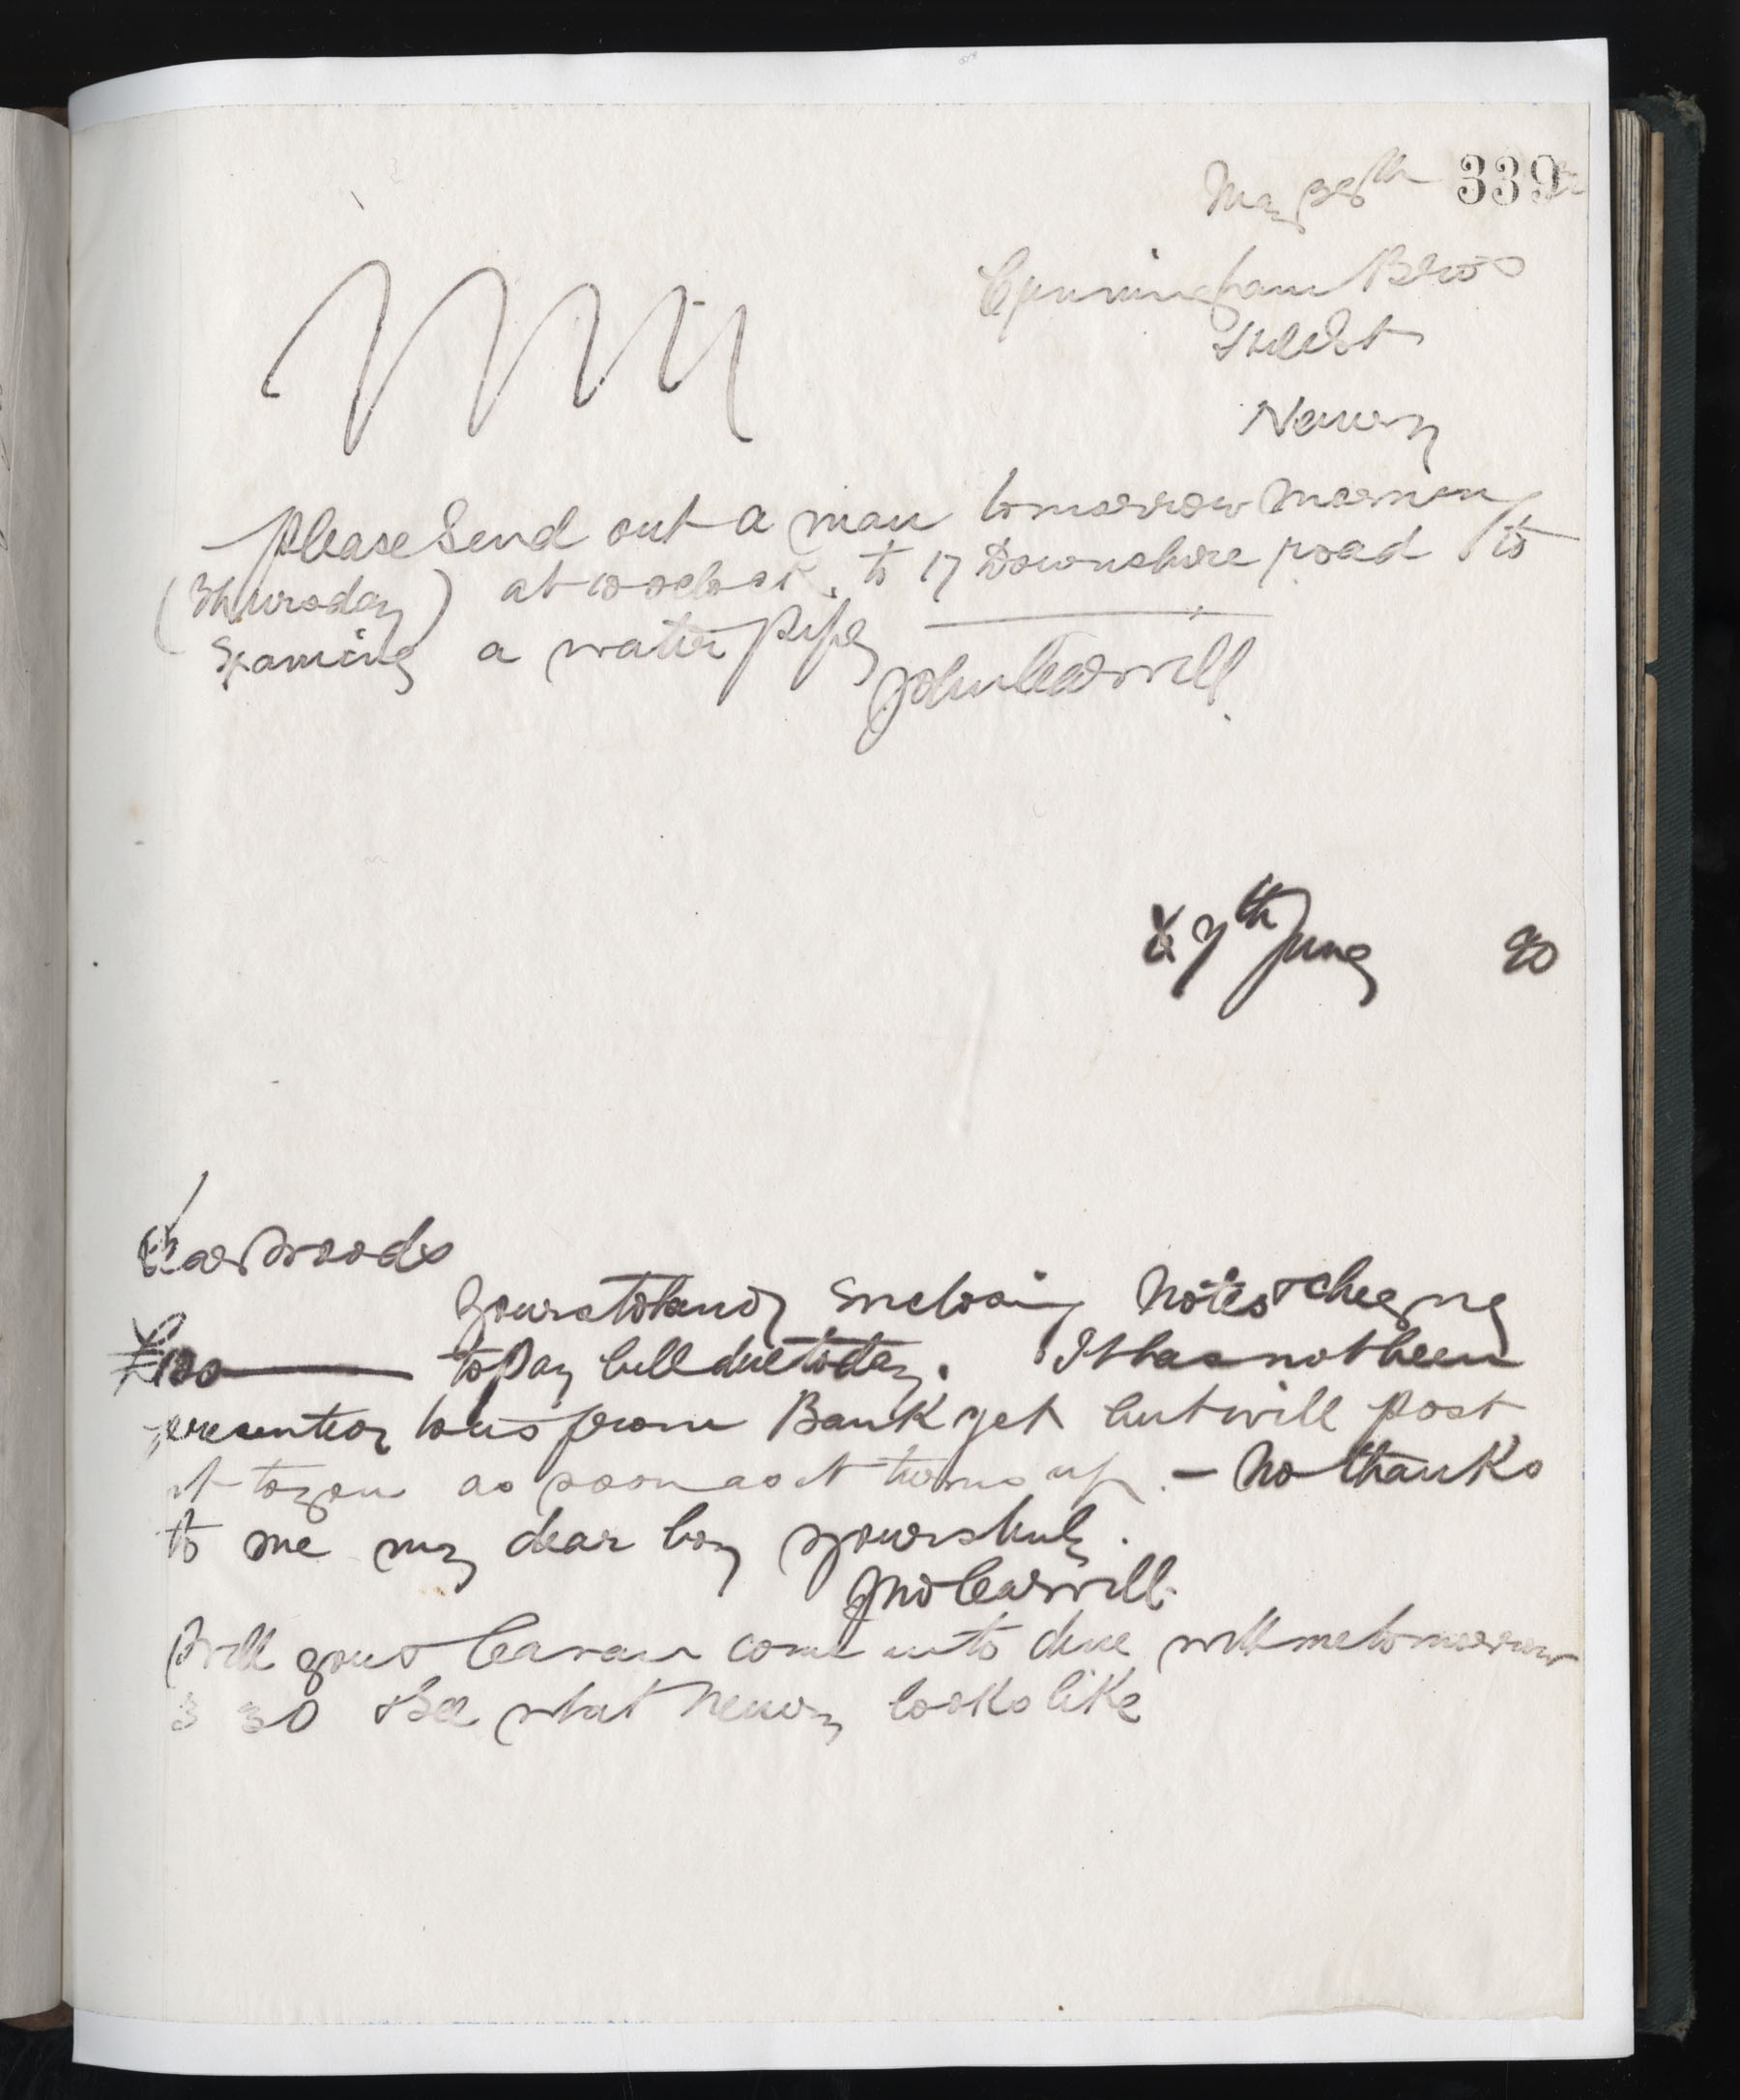 May 28th 339
Cunningham Bros
Hill St
Newry
Please Send out a man tomorrow morning
(Thursday) at 10 oclock. to 17 Downshire road to
Examine a water pipe
John Carvill
7th June 90
Dear Woods
Yours to hand Enclosing Notes & cheque
£100 to Pay bill due today. It has not been
presented to us from Bank yet but will post
it to you as soon as it turns up. - No thanks
to me my dear boy yours truly.
Jno Carvill
Will you & Cavan come in to dine with me tomorrow
3 30 & See what Newry looks like